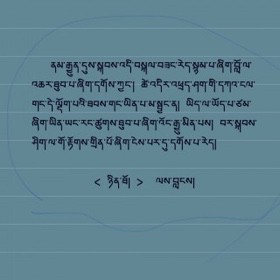 ནམ་རྒྱུན་དུས་སྐབས་འདི་བསྐལ་བཟང་རེད་སྙམ་པ་ཞིག་བློ་ལ་
འཆར་ཐུབ་པ་ཞིག་དགོས་ཀྱང་། ཚེ་འདིར་འཕྲད་ཤག་གི་དཀའ་ངལ་
གང་དེ་ལྡོག་པའི་ཐབས་གང་ཡིན་པ་མ་སྦྱང་ན། ཡིད་ལ་ཡོད་པ་ཙམ་
ཞིག་ཡིན་ཡང་རང་ཚུགས་ཐུབ་པ་ཞིག་འོང་རྒྱུ་མིན་པས། བར་སྐབས་
ཤིག་ལ་གོ་རྟོགས་གྲིན་པོ་ཞིག་ངེས་པར་དུ་དགོས་པ་རེད།
< ཉིན་ཐོ། > ལས་བླངས།